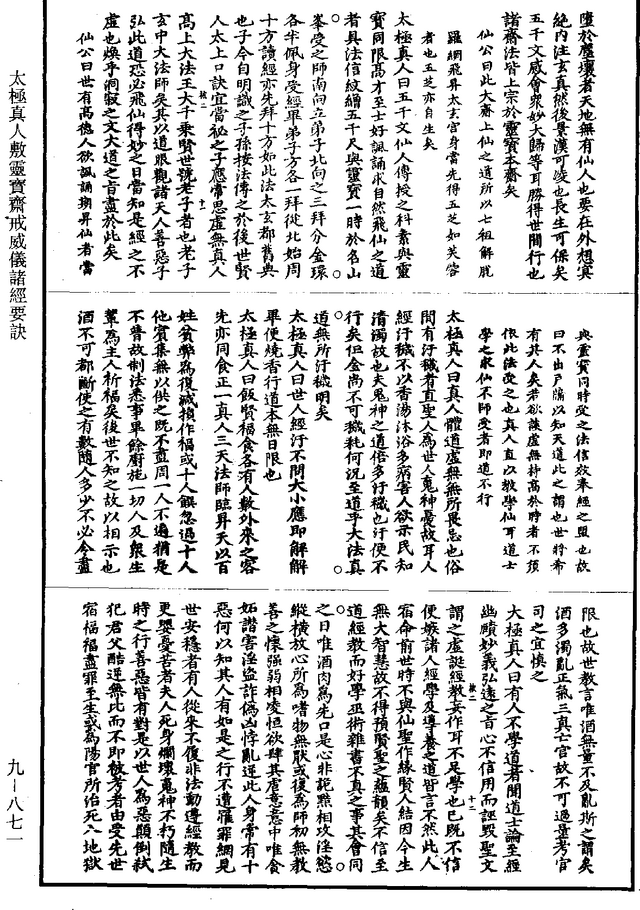 墮於塵壞者天地無有仙人也要在外想寘
絶內注玄真然後景漢可淩也長生可保矣
五千文威會衆妙大歸等耳勝得世間行也
諸齋法皆上宗於靈寶本齋矣
仙公曰此大齋上仙之道所以七祖解脱
羅網飛昇太玄宮身當先得五芝如芙蓉
者也五芝亦自生矣
太極真人曰五千文仙人傳授之科素與靈
寶同限高才至士好諷誦求自然飛仙之道
者具法信紋繒五千尺與靈寶一時於名山
峯受之師南向立弟子北向之三拜分金環
各半佩身受經畢弟子方各一拜從北始周
十方讀經亦先拜十方如此法太玄都舊典
也子今自明識之子孫按法傳之於後世賢
人太上口訣宜當祕之子應常思虛無真人
高上大法王大千乘賢世號老子者也老子
玄中大法師矣其以道眼觀諸天人善惡子
弘此道恐必飛仙得妙之日當知是經之不
虛也煥乎洞寂之文大道之旨盡於此矣
仙公曰世有高德人欲諷誦期昇仙者當
典靈寶同時受之法信效奉經之盟也故
曰不出戶牖以知天道此之謂也世時希
有其人矣若欲謙虛無持高於時者不須
依此法受之也真人直以教學仙耳道士
學之求仙不師受者即道不行
太極真人曰真人體道虛無無所畏忌也俗
間有汙穢者直聖人為世人鬼神憂故耳人
經汙穢不以香湯沐浴多病害人欲示民知
清濁故也夫鬼神之道倍多汙穢也汙便不
行矣但金尚不可穢耗何況至道乎大法真
道無所汙穢明矣
太極真人曰世人經汙不問大小應即解解
畢便燒香行道本無日限也
太極真人曰飯賢福食各有人數外來之客
先亦同食正一真人三天法師臨昇天以百
姓貧弊為復減損作福或十人饌忽過十人
他賓集無以供之既不盡周一人不遍猶是
不普故制法悉事畢餘廚施一切人及衆生
輩為主人祈福矣後世不知之故以相示也
酒不可都斷使之有數隨人多少不必令盡
限也故世教言唯酒無量不及亂斯之謂矣
酒多濁亂正氣三真亡宮故不可過量考官
司之宜慎之
太極真人曰有人不學道者聞道士論至經
幽賾妙義弘遠之旨心不信用而誣毁聖文
謂之虛誕經教妄作耳不足學也已既不信
便嫉諸人經學及導養之道皆言不然此人
宿命前世時不與仙聖作緣賢人結因今生
無大智慧故不得預賢聖之蘊韻矣不信至
道經教而好學巫術雜書不真之事其會同
之日唯酒肉為先口是心非詭黠相攻淫慾
縱横放心所為嗜物無猒或復為師初無教
善之懷强弱相凌恒欲肆其虐意意中唯食
妬譖害淫盜詐偽凶悖亂逆此人身常有十
惡何以知其人有如是之行不遺羅罪網見
世安穩者有人從來不復非法動遵經教而
更嬰憂苦者夫人死身爛壞鬼神不朽隨生
時之行善惡皆有對是以世人為惡顛倒弒
犯君父酷逆無比而不即被考者由受先世
宿福福盡罪至生或為陽官所治死入地獄
太極真人敷靈寶齋戒威儀諸經要訣
九—八七一